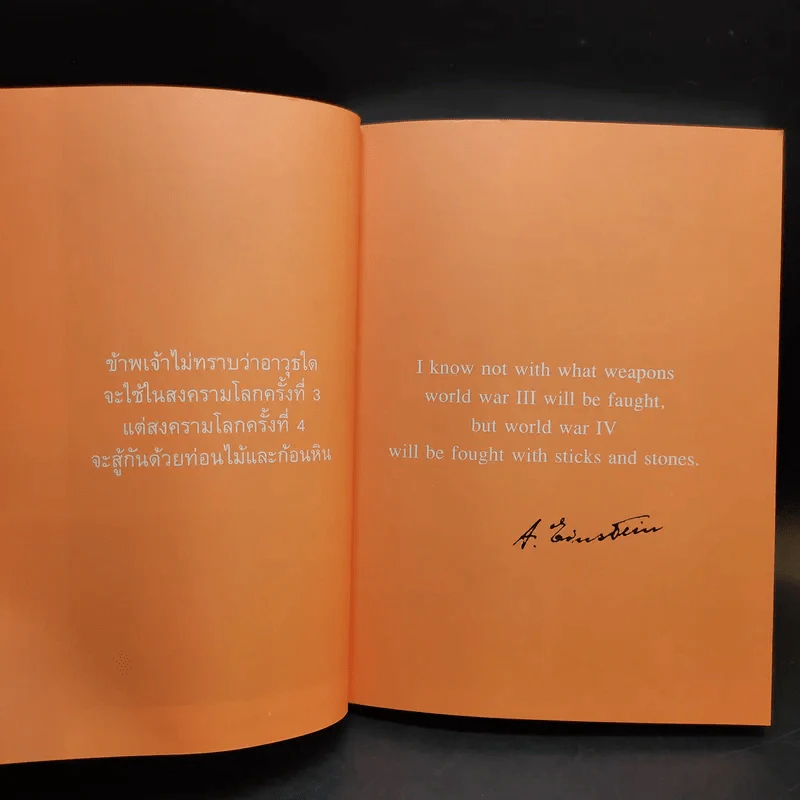 ข้าพเจ้าไม่ทราบว่าอาวุธใด
จะใช้ในสงครามโลกครั้งที่ 3
แต่สงครามโลกครั้งที่ 4
จะสู้กันด้วยท่อนไม้และก้อนหิน
I know not with what weapons
world war III will be faught,
but world war IV
will be fought with sticks and stones.
A. Einstein